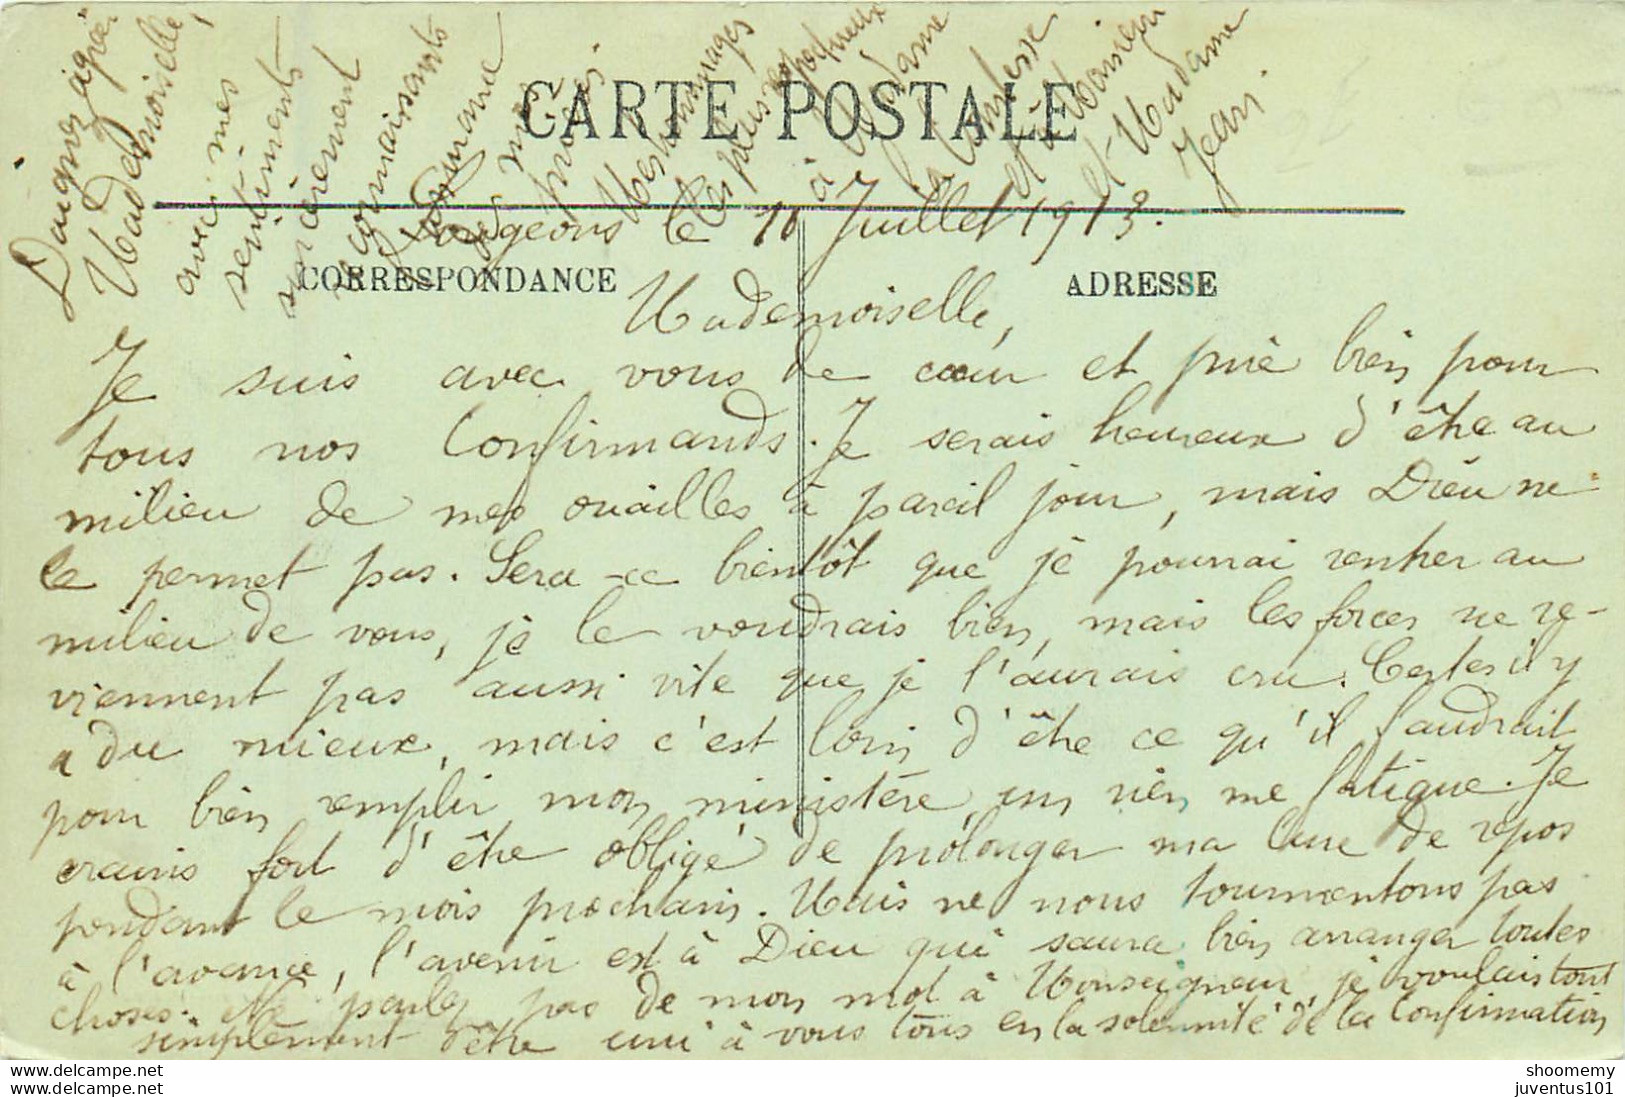 CARTE POSTALE
Lougeons le 10 Juillet 1913.
CORRESPONDANCE
ADRESSE
Mademoiselle,
Je suis avec vous de cœur et prie bien pour
tous nos Confirmands. Je serais heureux d'être au
milieu de mes ouailles à pareil jour, mais Dieu ne
le permet pas. Sera-ce bientôt que je pourrai rentrer au
milieu de vous, je le voudrais bien, mais les forces ne re-
viennent pas aussi vite que je l'aurais cru. Certes il y
a du mieux, mais c'est loin d'être ce qu'il faudrait
pour bien remplir mon ministère, un rien me fatigue. Je
crains fort d'être obligé de prolonger ma cure de repos
pendant le mois prochain. Mais ne nous tourmentons pas
à l'avance, l'avenir est à Dieu qui saura bien arranger toutes
choses. Ne parlez pas de mon mot à Monseigneur, je voulais tout
simplement être uni à vous tous en la solennité de la Confirmation
Daignez agréer
Mademoiselle,
avec mes
sentiments
sincèrement
reconnaissants
mes
Mes hommages
les plus respectueux
à Madame
la Comtesse
et à Monsieur
et Madame
Jean
shoomemy
juventus101